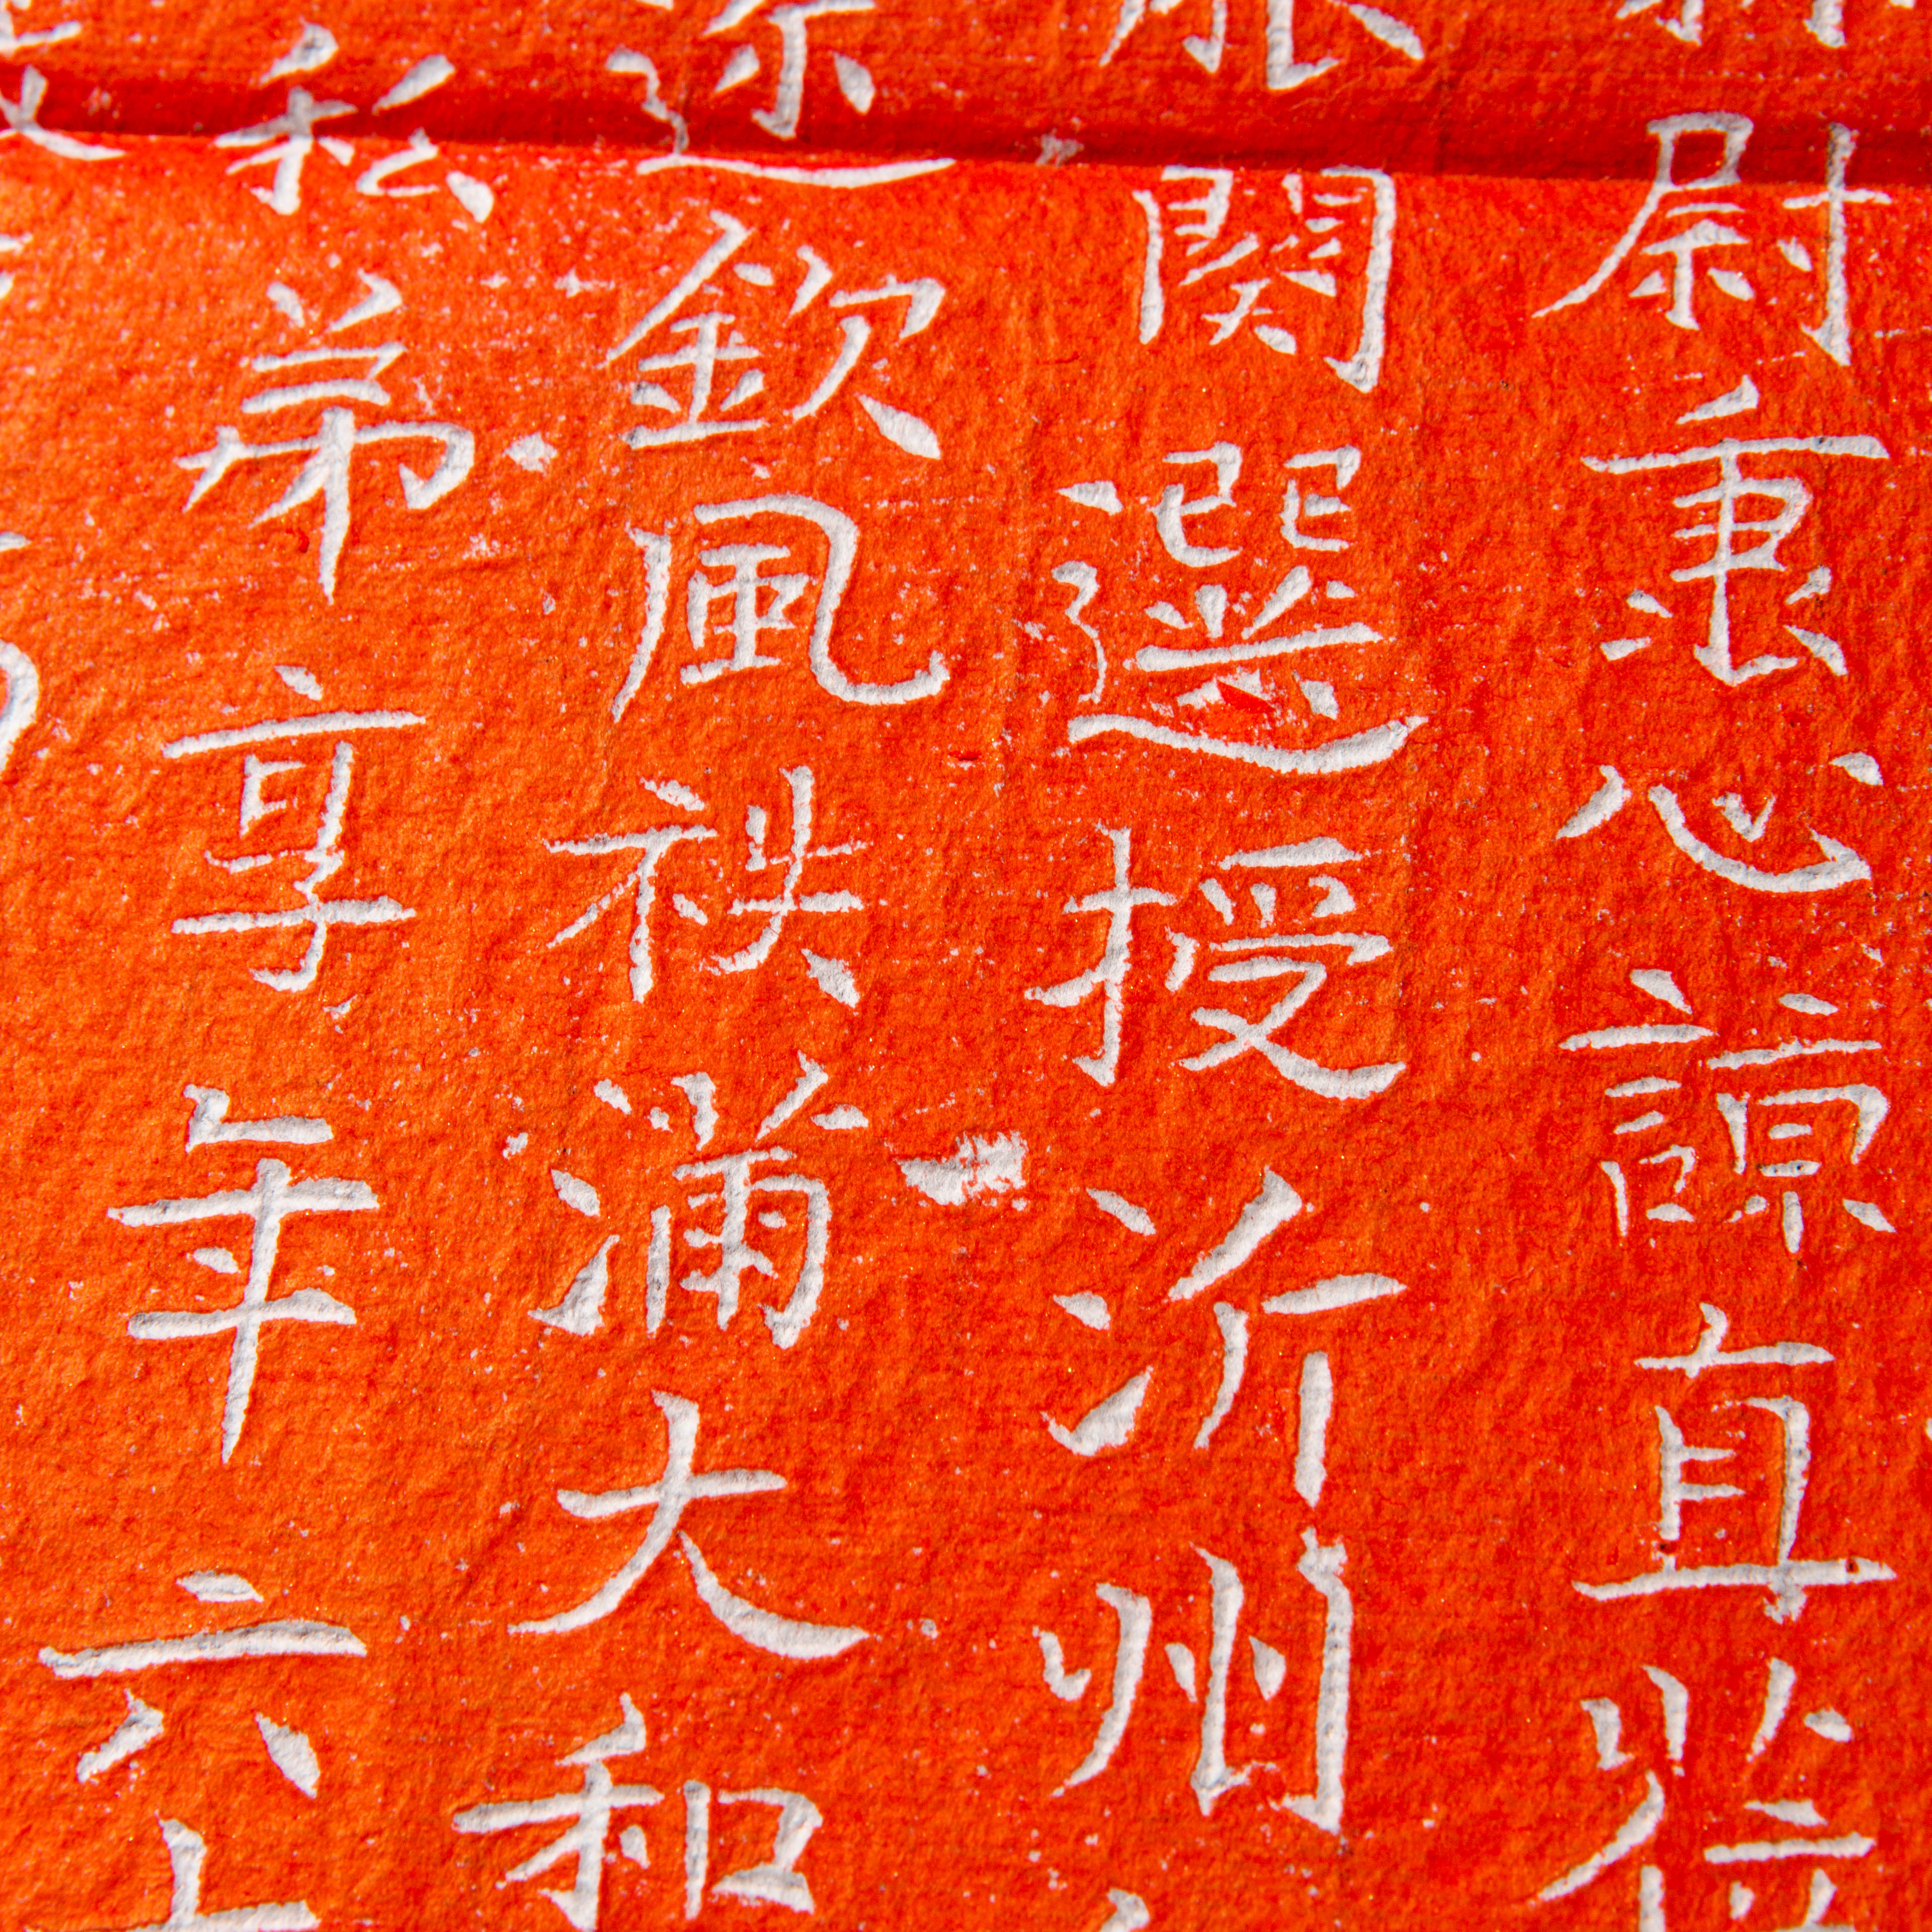 尉秉心諒直
関選授沂州
欽風袟滿大和
私弟享年六十